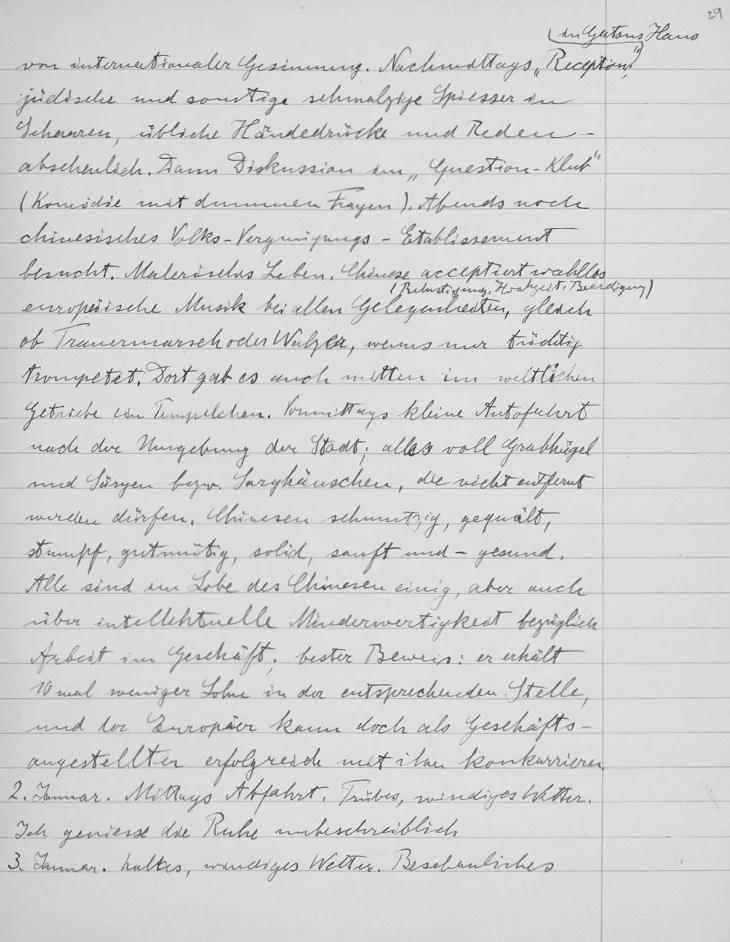 29
(in Gatons Haus
von internationaler Gesinnung. Nachmittags „Reception",
jüdische und sonstige schmalzige Spiesser in
Scharen, übliche Händedrücke und Reden –
abscheulich. Dann Diskussion im „Question-Klub"
(Komödie mit dummen Fragen). Abends noch
chinesisches Volks-Vergnügungs-Etablissement
besucht. Malerisches Leben. Chinese acceptiert wahllos
(Belustigung, Hochzeit, Beerdigung)
europäische Musik bei allen Gelegenheiten, gleich
ob Trauermarsch oder Walzer, wenns nur tüchtig
trompetet. Dort gab es auch mitten im weltlichen
Getriebe ein Tempelchen. Vormittags kleine Autofahrt
nach der Umgebung der Stadt; alles voll Grabhügel
und Särgen bezw. Sarghäuschen, die nicht entfernt
werden dürfen. Chinesen schmutzig, gequält,
stumpf, gutmütig, solid, sanft und – gesund.
Alle sind im Lobe des Chinesen einig, aber auch
über intellektuelle Minderwertigkeit bezüglich
Arbeit im Geschäft; bester Beweis: er erhält
10 mal weniger Lohn in der entsprechenden Stelle,
und der Europäer kann doch als Geschäfts-
angestellter erfolgreich mit ihm konkurrieren.
2. Januar. Mittags Abfahrt. Trübes, windiges Wetter.
Ich geniesse die Ruhe unbeschreiblich
3. Januar. kaltes, windiges Wetter. Beschauliches